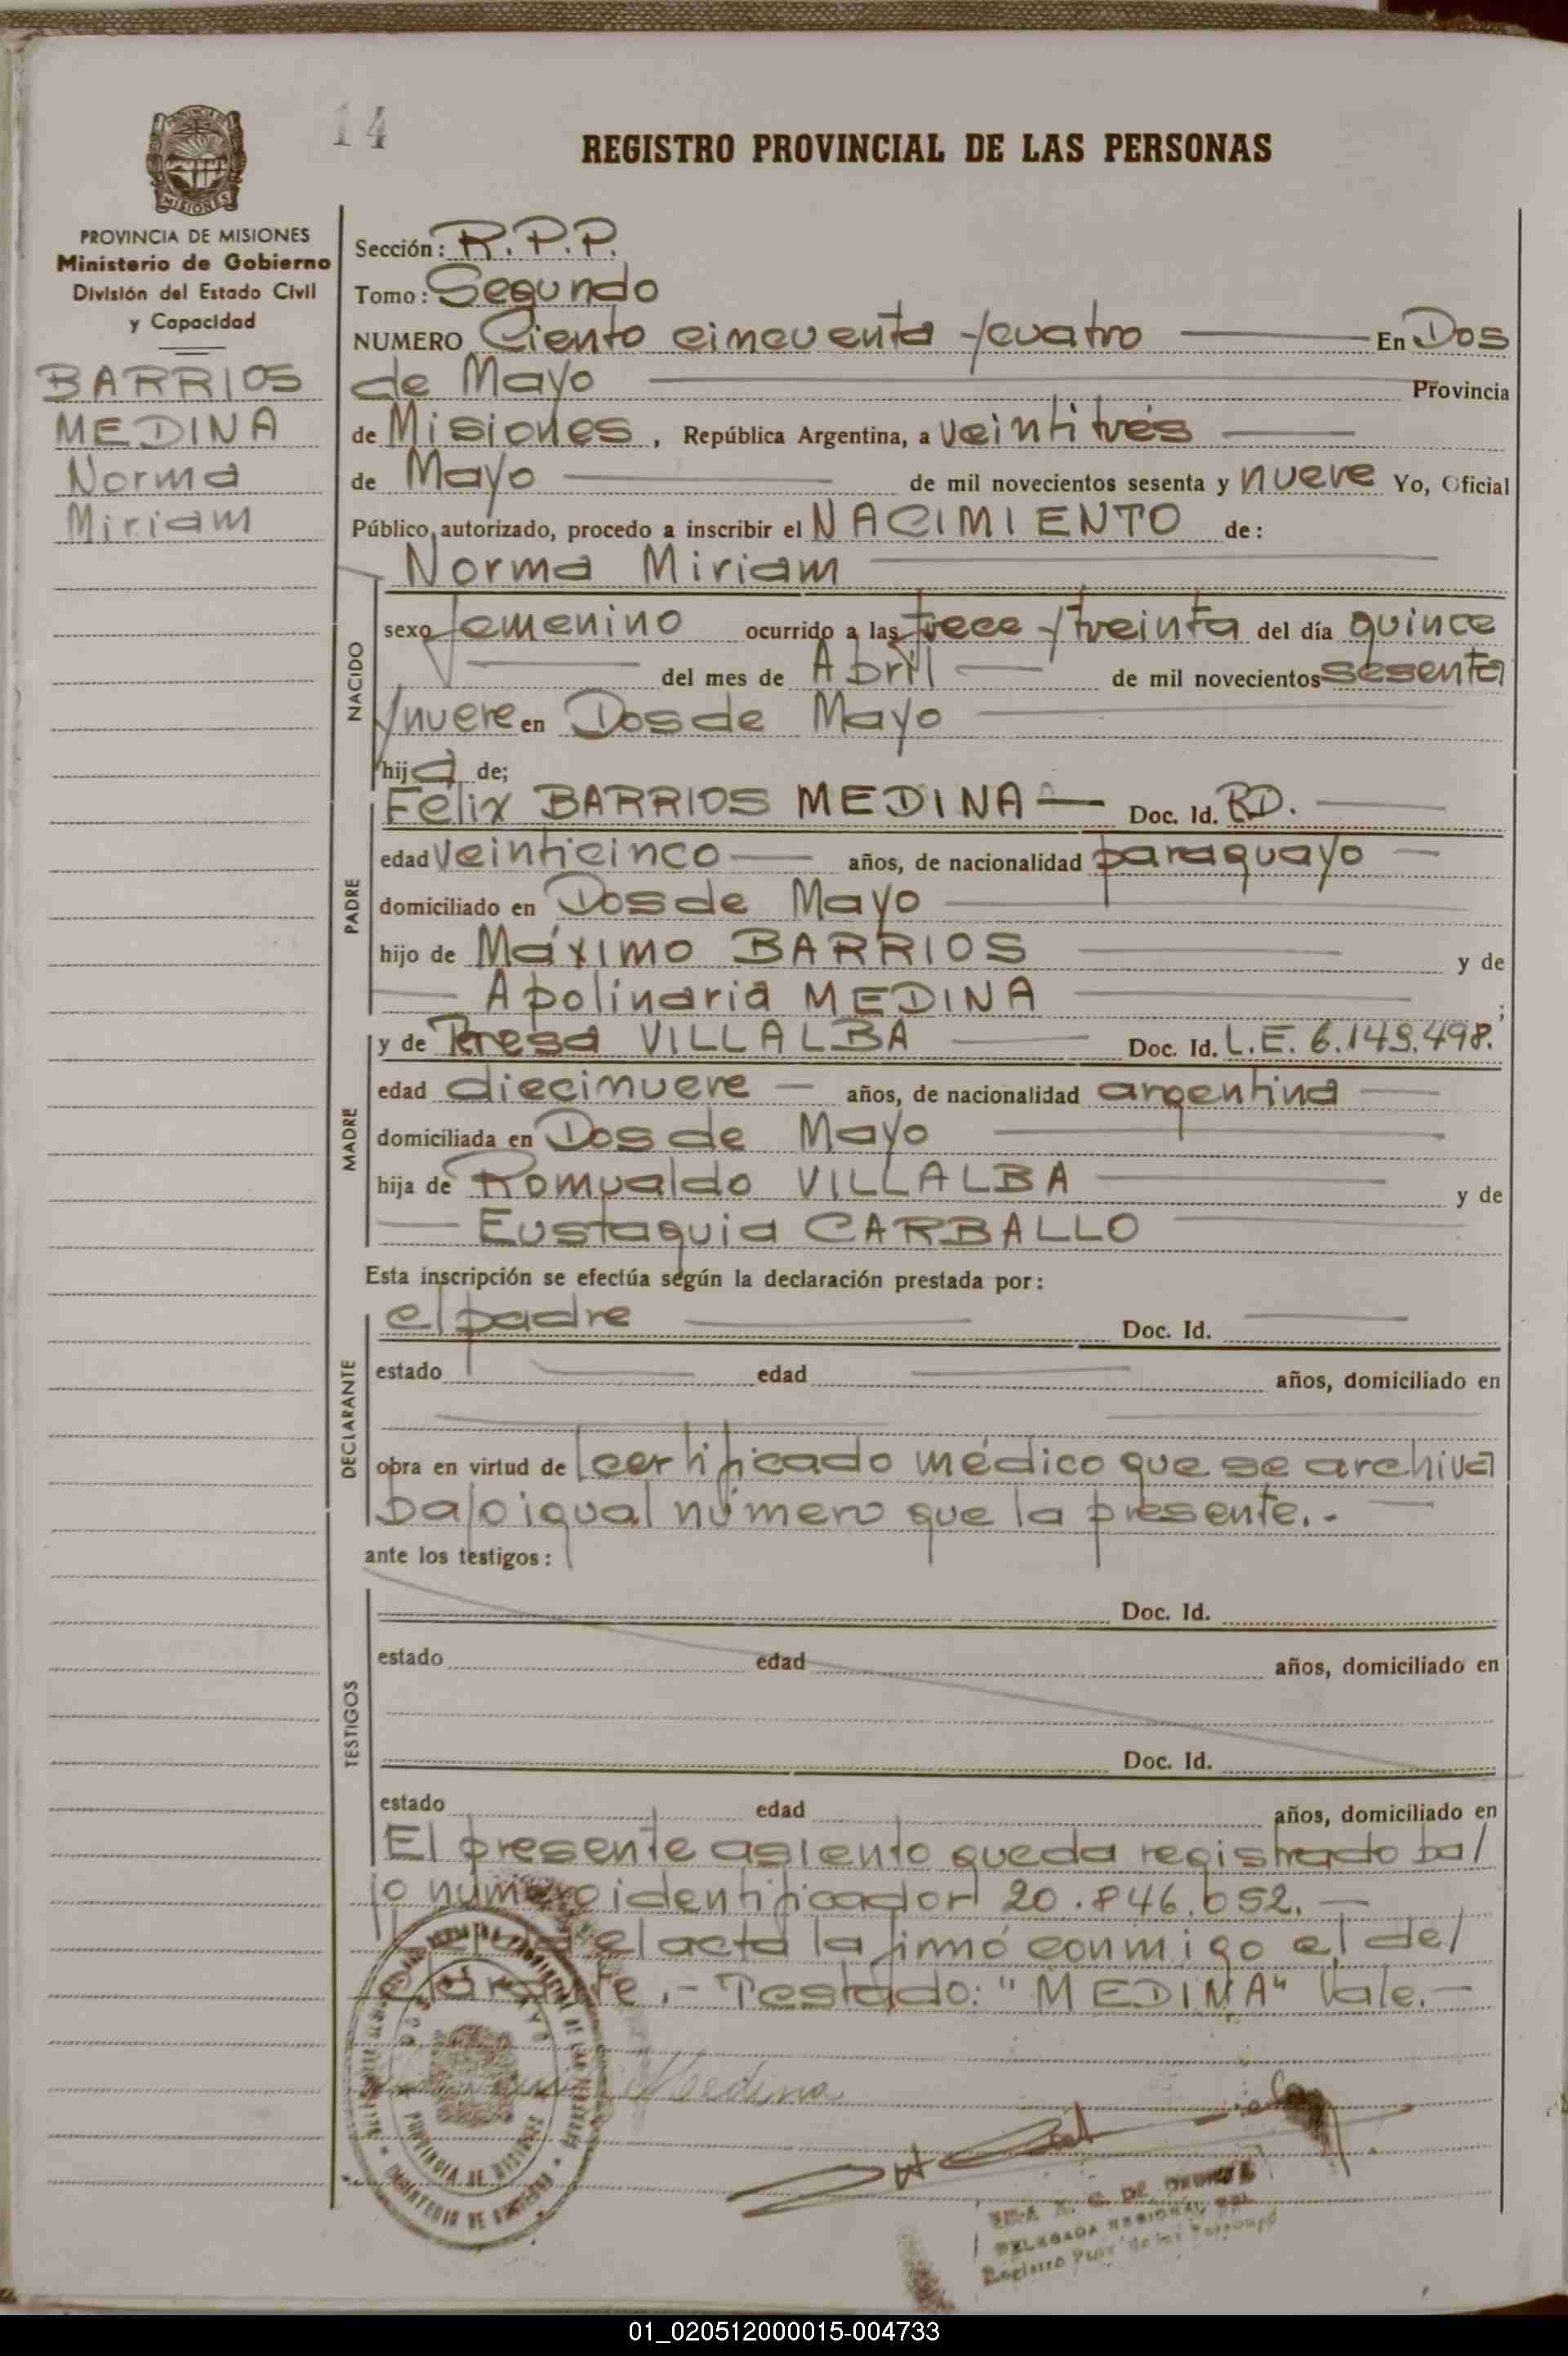 14
REGISTRO PROVINCIAL DE LAS PERSONAS
MISIONES
PROVINCIA DE MISIONES
Ministerio de Gobierno
División del Estado Civil
y Capacidad
BARRIOS
MEDINA
Norma
Miriam
Sección: R.P.P.
Tomo: Segundo
NUMERO Ciento cincuenta y cuatro En Dos
de Mayo Provincia
de Misiones, República Argentina, a veintitrés
de Mayo de mil novecientos sesenta y nueve Yo, Oficial
Público autorizado, procedo a inscribir el NACIMIENTO de:
Norma Miriam
NACIDO
sexo femenino ocurrido a las trece y treinta del día quince
del mes de Abril de mil novecientos sesenta
y nueve en Dos de Mayo
hija de;
PADRE
Félix BARRIOS MEDINA — Doc. Id. RD.
edad veinticinco años, de nacionalidad paraguayo
domiciliado en Dos de Mayo
hijo de Máximo BARRIOS y de
Apolinaria MEDINA ;
MADRE
y de Teresa VILLALBA Doc. Id. L.E. 6.149.498.
edad diecinueve años, de nacionalidad argentina
domiciliada en Dos de Mayo
hija de Romualdo VILLALBA y de
Eustaquia CARBALLO
Esta inscripción se efectúa según la declaración prestada por:
DECLARANTE
el padre Doc. Id.
estado edad años, domiciliado en
obra en virtud de certificado médico que se archiva
bajo igual número que la presente.-
ante los testigos:
TESTIGOS
Doc. Id.
estado edad años, domiciliado en
Doc. Id.
estado edad años, domiciliado en
El presente asiento queda registrado ba/
jo número identificador 20.846.052.-
el acta la firmó conmigo el de/
clarante.- Testado: "MEDINA" Vale.-
Medina
DOS DE MAYO
PROVINCIA DE MISIONES
MINISTERIO DE GOBIERNO
DELEGADA REGIONAL DEL
01_020512000015-004733